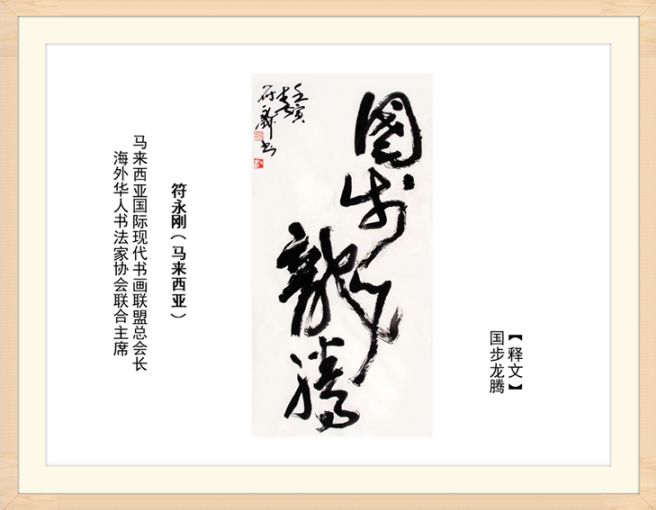 【释文】
国步龙腾
國步
龍騰
壬寅
春
符永刚书
符永刚（马来西亚）
马来西亚国际现代书画联盟总会长
海外华人书法家协会联合主席